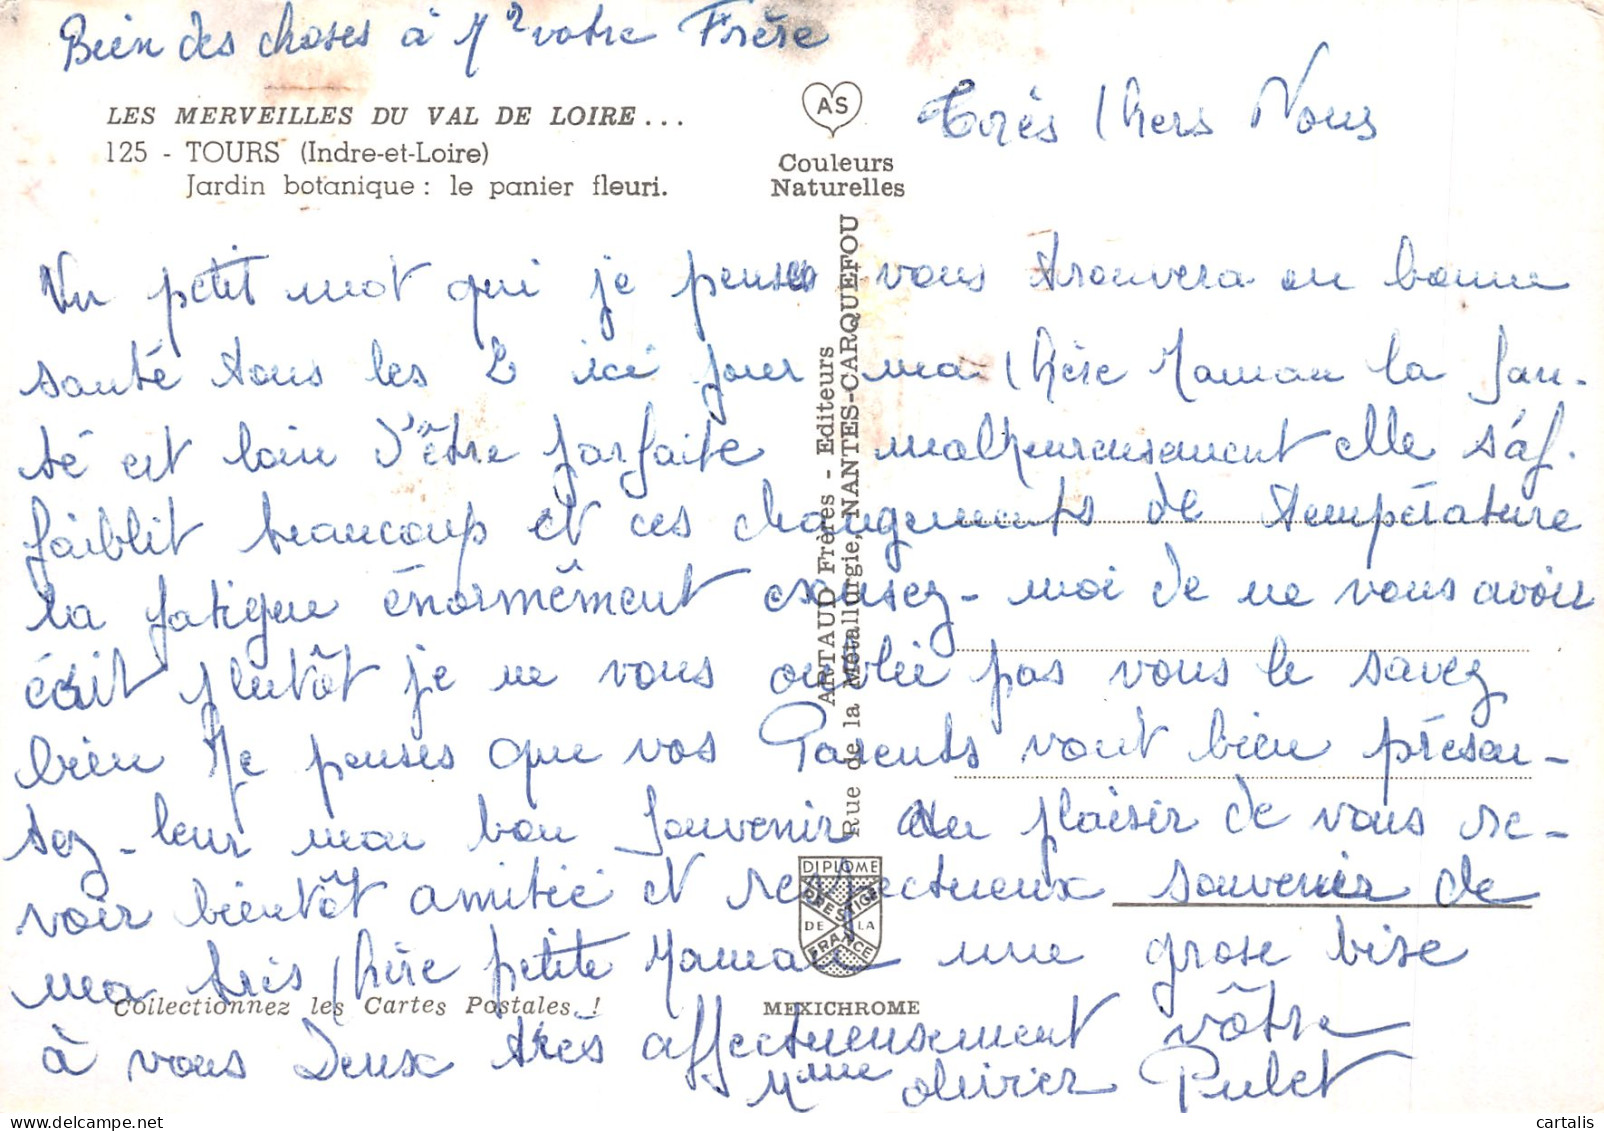 Bien des choses à Mr votre Frère
LES MERVEILLES DU VAL DE LOIRE...
125 - TOURS (Indre-et-Loire)
Jardin botanique : le panier fleuri.
AS
Couleurs
Naturelles
Très Chers Vous
Un petit mot qui je penses vous trouvera en bonne
santé tous les 2 ici pour ma Chère Maman la san-
té est loin d'être parfaite malheureusement elle s'af-
faiblit beaucoup et ces changements de température
la fatigue énormêment excusez-moi de ne vous avoir
écrit plutôt je ne vous oublie pas vous le savez
bien Je penses que vos Parents vont bien présen-
tez-leur mon bon souvenir au plaisir de vous re-
voir bientôt amitié et respectueux souvenir de
ma très Chère petite Maman une grose bise
à vous Deux très affectueusement vôtre
Mme olivier Pulet
ARTAUD Frères - Editeurs
Rue de la Métallurgie, NANTES-CARQUEFOU
DIPLOME
PRESTIGE
DE LA
FRANCE
Collectionnez les Cartes Postales !
MEXICHROME
cartalis